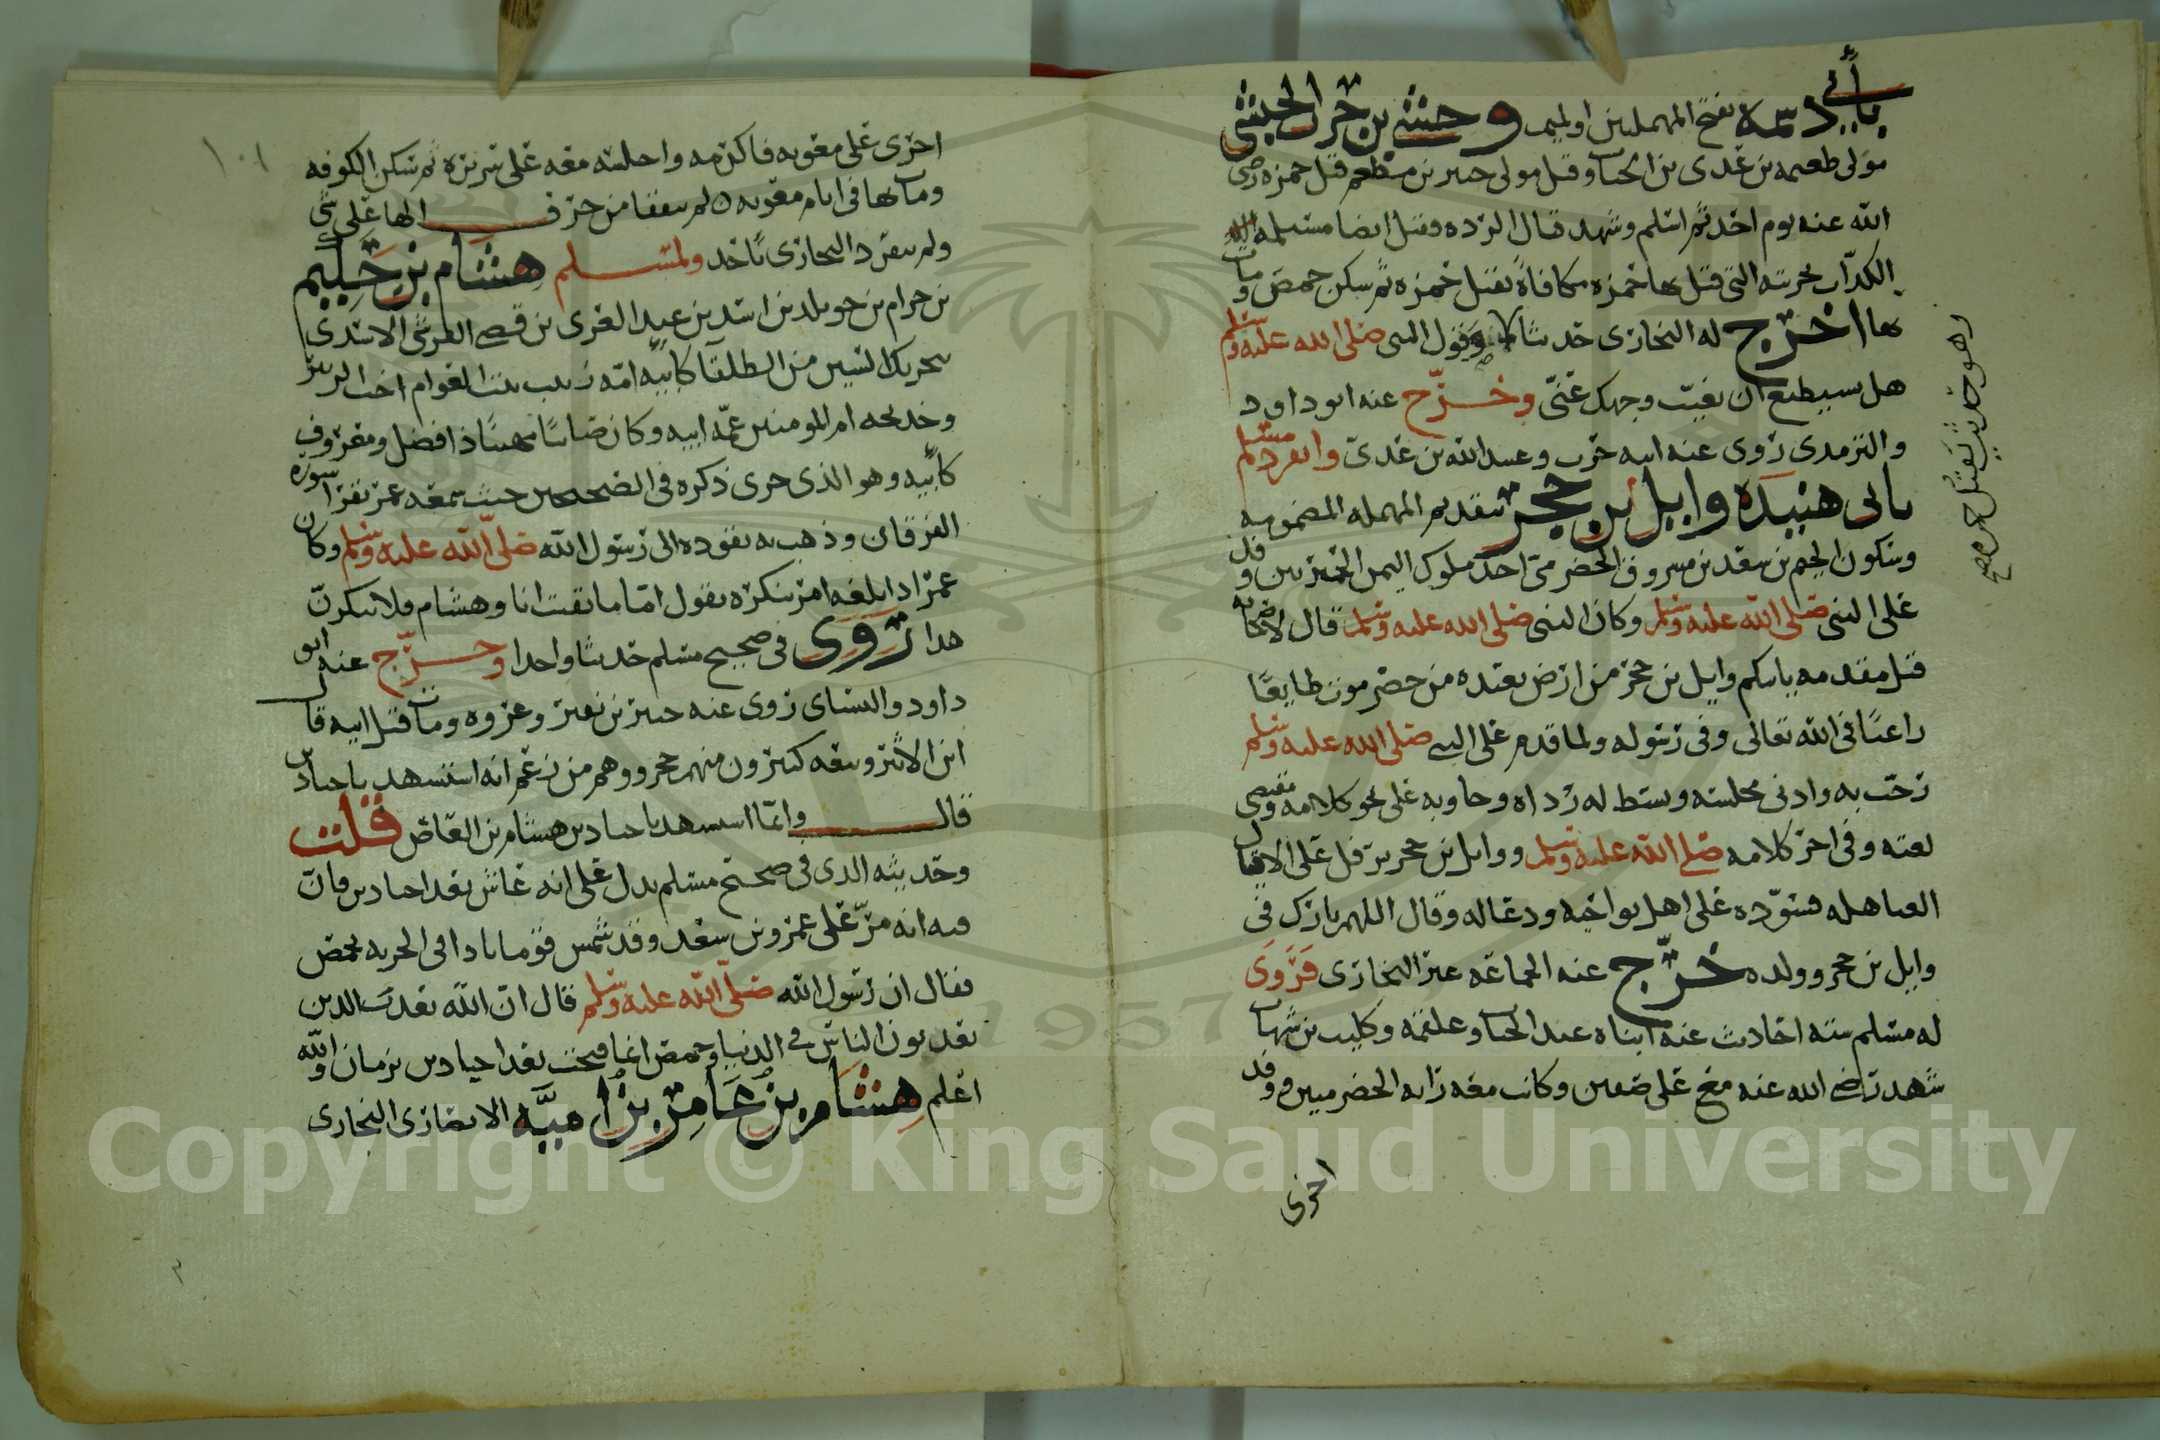 بأبي دسمة بفتح المهملتين اوليهما وحشي بن حرب الحبشي
مولى طعيمه بن عدي بن الخيار وقيل مولى جبير بن مطعم قتل حمزه رضي
الله عنه يوم احد ثم اسلم وشهد قتال الرده وقتل ايضا مسيلمه
الكذاب بحربته التي قتل بها حمزه مكافاة بقتل حمزه ثم سكن حمص ومات
بها اخرج له البخاري حديثا وقول النبي صلى الله عليه وسلم
هل تستطيع ان تغيب وجهك عني وخرّج عنه ابو داود
والترمذي روى عنه ابنه حرب وعبيد الله بن عدي وانفرد مسلم
بابي هنيدة وايل بن حجر بتقديم المهمله المضمومه
وسكون الجيم بن سعد بن مسروق الحضرمي احد ملوك اليمن الحميريين وفد
على النبي صلى الله عليه وسلم وكان النبي صلى الله عليه وسلم قال لاصحابه
قبل مقدمه ياتيكم وايل بن حجر من ارض بعيده من حضرموت طايعًا
راغبًا في الله تعالى وفي رسوله ولما قدم على النبي صلى الله عليه وسلم
رحب به وادنى مجلسه وبسط له رداه وجاوبه على نحو كلامه ومقتضى
لغته وفي اخر كلامه صلى الله عليه وسلم ووايل بن حجر يترفل على الاقيال
العباهله فسوّده على اهل نواحيه ودعا له وقال اللهم بارك في
وايل بن حجر وولده خرّج عنه الجماعه عير البخاري فروى
له مسلم سته احاديث عنه ابناه عبد الجبار وعلقمه وكليب بن شهاب
شهد رضي الله عنه مع علي صفين وكانت معه رايه الحضرميين وفد
اخرى
وهو حديث بقتل حمزه صح
١٠١
اخرى على معويه فاكرمه واجلسه معه على سريره ثم سكن الكوفه
ومات بها في ايام معويه ه لم يتفقا من حرف الها على شي
ولم ينفرد البخاري بأحد ولمسلم هشام بن حكيم
بن حزام بن خويلد بن اسد بن عبد العزى بن قصي القرشي الاسدي
بتحريك السين من الطلقآ كأبيه امه زينب بنت العوام اخت الزبير
وخديجه ام المومنين عمّه ابيه وكان صاينًا مهيبًا ذا فضل ومعروف
كأبيه وهو الذي جرى ذكره في الصحيحين حيث سمعه عمر يقرا سورة
الفرقان وذهب به يقوده الى رسول الله صلى الله عليه وسلم وكان
عمر اذا بلغه امر ينكره يقول امّا ما بقيت انا وهشام فلا يكونّ
هذا روى في صحيح مسلم حديثا واحدا وخرّج عنه ابو
داود والنساى روى عنه جبير بن نفير وعروه ومات قبل ابيه قا
ابن الاثير وتبعه كثيرون منهم حجر ووهم من زعم انه استشهد باجنادين
قال وانما استشهد باجنادين هشام بن العاص قلت
وحديثه الذي في صحيح مسلم يدل على انه عاش بعد اجنادين فان
فيه انه مرّ على عمرو بن سعد وقد شمس قوما نادا في الجزيه بحمص
فقال ان رسول الله صلى الله عليه وسلم قال ان الله يعذب الذين
يعذبون الناس في الدنيا وحمص انما فتحت بعد اجنادين بزمان والله
اعلم هشام بن عامر بن اميّه الانصاري البخاري